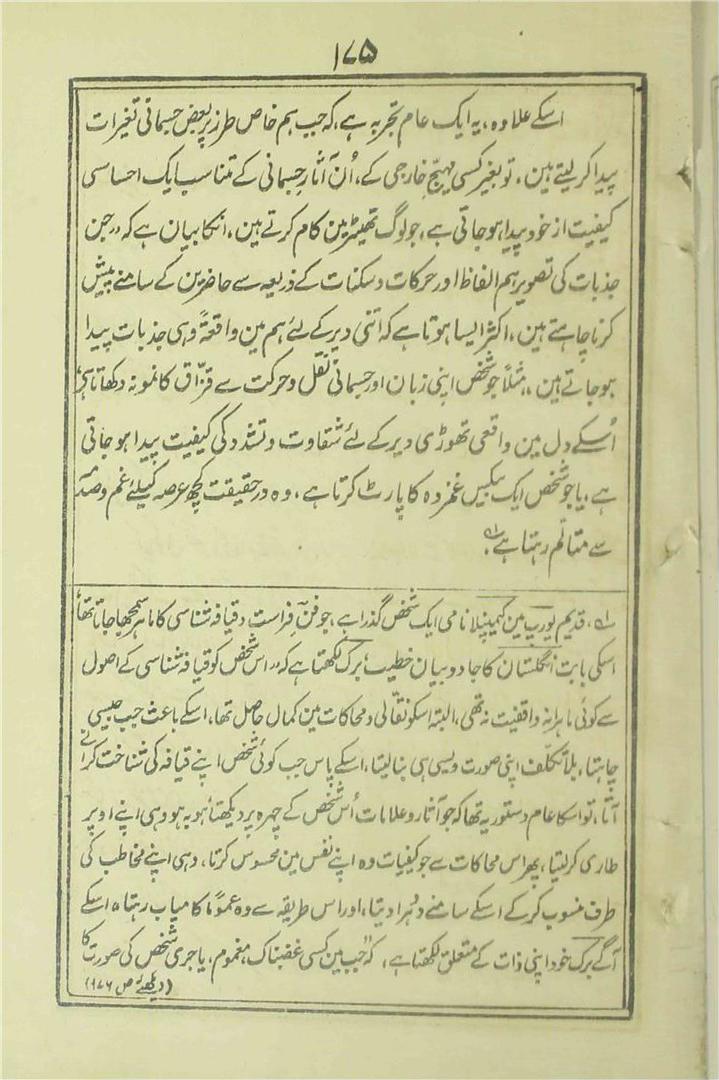 ۱۷۵
اسکے علاوہ، یہ ایک عام تجربہ ہے، کہ جب ہم خاص طرز پر بعض جسمانی تغیرات
پیدا کر لیتے ہین، تو بغیر کسی مہیّجِ خارجی کے، اُن آثارِ جسمانی کے متناسب ایک احساسی
کیفیت از خود پیدا ہو جاتی ہے، جو لوگ تھیٹر مین کام کرتے ہین، انکا بیان ہے کہ "جن
جذبات کی تصویر ہم الفاظ اور حرکات و سکنات کے ذریعہ سے حاضرین کے سامنے پیش
کرنا چاہتے ہین، اکثر ایسا ہوتا ہے کہ اتنی دیر کے لئے ہم مین واقعۃً وہی جذبات پیدا
ہو جاتے ہین،، مثلاً جو شخص اپنی زبان اور جسمانی نقل و حرکت سے قزّاق کا نمونہ دکھاتا ہی،
اُسکے دل مین واقعی تھوڑی دیر کے لئے شقاوت و تشدد کی کیفیت پیدا ہو جاتی
ہے، یا جو شخص ایک بیکس غمزدہ کا پارٹ کرتا ہے، وہ درحقیقت کچھ عرصہ کیلئے غم و صدمہ
سے متالّم رہتا ہے ؎۱
؎۱، قدیم یورپ مین کیمپنیلا نامی ایک شخص گذرا ہے، جو فنِ فراست و قیافہ شناسی کا ماہر سمجھا جاتا تھا،
اسکی بابت انگلستان کا جادو بیان خطیب، برک لکھتا ہے کہ "اس شخص کو قیافہ شناسی کے اصول
سے کوئی ماہرانہ واقفیت نہ تھی، البتہ اسکو نقّالی و محاکات مین کمال حاصل تھا، اسکے باعث جب جیسی
چاہتا، بلا تکلّف اپنی صورت ویسی ہی بنا لیتا، اسکے پاس جب کوئی شخص اپنے قیافہ کی شناخت کرانے
آتا، تو اسکا عام دستور یہ تھا کہ جو آثار و علامات اُس شخص کے چہرہ پر دیکھتا، ہو بہو وہی اپنے اوپر
طاری کر لیتا، پھر اس محاکات سے جو کیفیات وہ اپنے نفس مین محسوس کرتا، وہی اپنے مخاطب کی
طرف منسوب کر کے اسکے سامنے دُہرا دیتا، اور اس طریقہ سے وہ عموماً کامیاب رہتا، اسکے
آگے برک خود اپنی ذات کے متعلق لکھتا ہے، کہ "جب مین کسی غضبناک، مغموم، یا جری شخص کی صورت کا
(دیکھئے ص ۱۷۶)